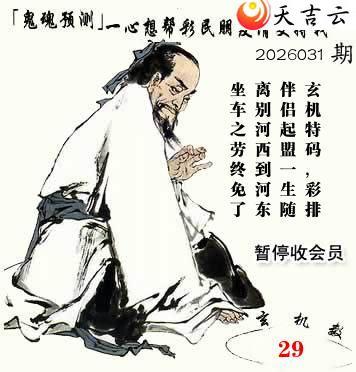 天吉云
「鬼魂预测」一心想帮彩民朋友
2026031 期
玄机特码，彩排
伴侣起盟一生随
离别河西到河东
坐车之劳终免了
暂停收会员
玄机
29